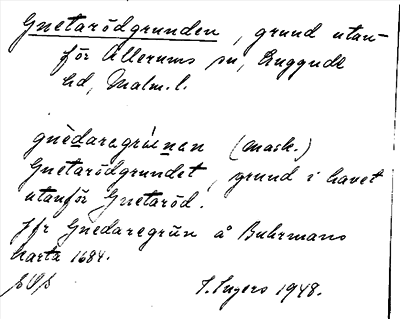 Gnetarödgrunden, grund utan-
för Allerums sn, Luggude
hd, Malm. l.
gnèdaregrúnen (mask.)
Gnetarödgrundet, grund i havet
utanför Gnetaröd.
Jfr Gnedaregrun å Buhrmans
karta 1684.
I. Ingers 1948.